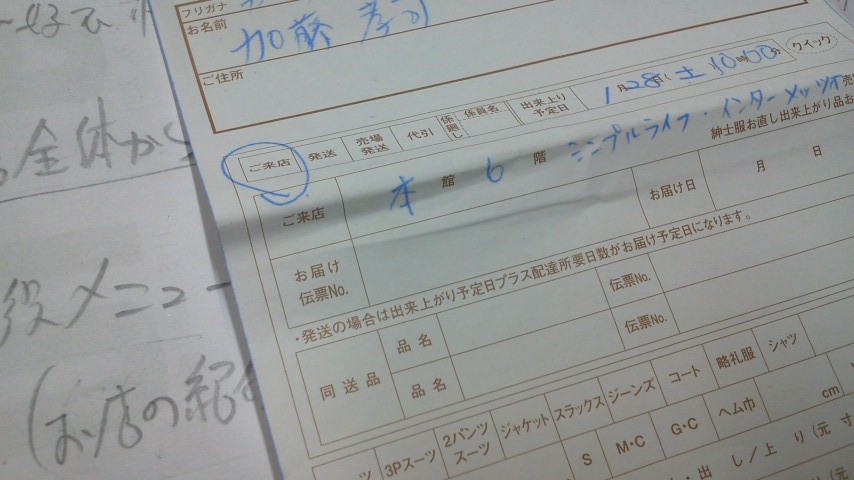 フリガナ
お名前 加藤 孝
ご住所
ご来店 発送 売場発送 代引 係渡し 係員名 出来上り予定日 1月28日(土 10時00分 クイック
ご来店 本館 6階 シンプルライフ・インターメッツォ売
紳士服お直し出来上がり品お
お届け伝票No. お届け日 月 日
・発送の場合は出来上がり予定日プラス配達所要日数がお届け予定日になります。
同送品 品名 伝票No.
品名 伝票No.
3Pスーツ 2パンツスーツ ジャケット スラックス ジーンズ コート 略礼服 シャツ
S M・C G・C ヘム巾 cm
・出し/上り(元寸
全体から
役メニュー
(お店の紹